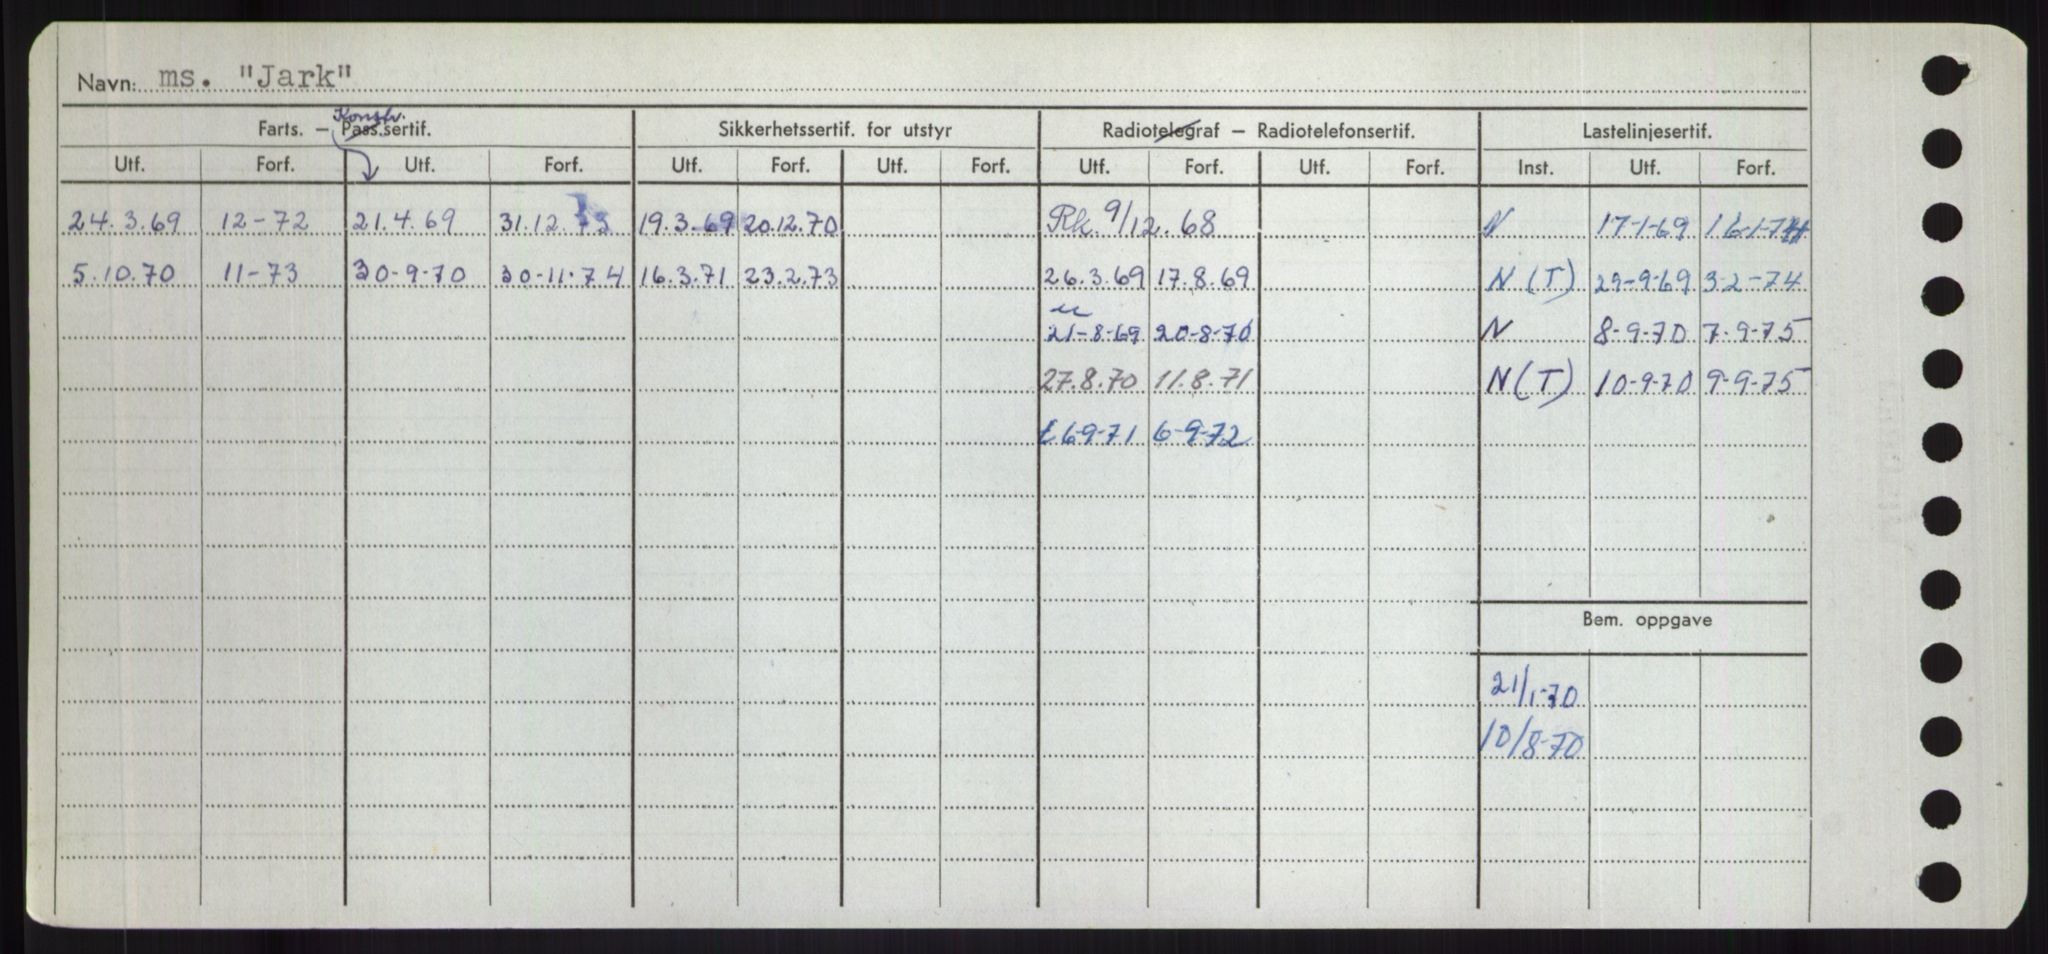 Navn: ms. "Jark"
Konstr.
Farts. — Pass.sertif. Sikkerhetssertif. for utstyr Radiotelegraf — Radiotelefonsertif. Lastelinjesertif.
Utf. Forf. Utf. Forf. Utf. Forf. Utf. Forf. Utf. Forf. Utf. Forf. Inst. Utf. Forf.
24.3.69 12-72 21.4.69 31.12.73 19.3.69 20.12.70 Rk. 9/12.68 N 17-1-69 16-1-74
5.10.70 11-73 30-9-70 30-11-74 16.3.71 23.2.73 26.3.69 17.8.69 N (T) 29-9-69 3-2-74
21-8-69 20-8-70 N 8-9-70 7-9-75
27.8.70 11.8.71 N (T) 10-9-70 9-9-75
6-9-71 6-9-72
Bem. oppgave
21/1-70
10/8-70